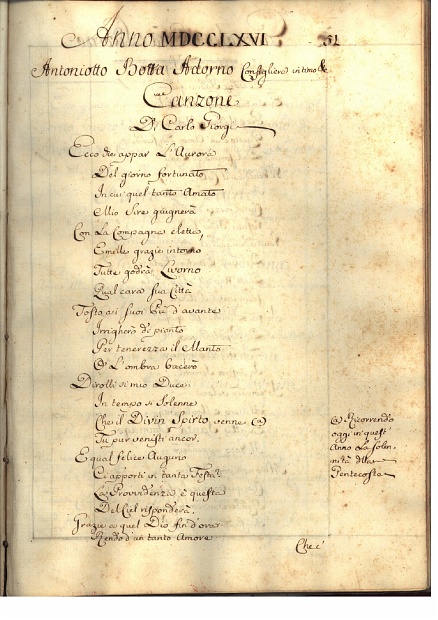 Anno MDCCLXVI
51
Antoniotto Botta Adorno Consigliere intimo &
Canzone
Di Carlo Giorgi
Ecco che appar L'Aurora
Del giorno fortunato
In cui quel tanto Amato
Mio Sire giugnerà
Con La Compagna eletta,
E mille grazie intorno
Tutte godrà Livorno
Qual cara sua Città
Tosto a i suoi Piè d'avante
Irrigherò di pianto
Per tenerezza il Manto
O L'ombra bacerò
Dirolli si mio Duce
In tempo si solenne
Che il Divin Spirto venne (a)
Tu pur venisti ancor.
E qual felice Augurio
Ci apporti in tanta Festa?
La Providenza è questa
Del Ciel risponderà.
Grazie a quel Dio fin d'ora
Rendo d'un tanto Amore
Che c'
(a) Ricorrendo
oggi in quest'
Anno La solen-
nità della
Pentecoste